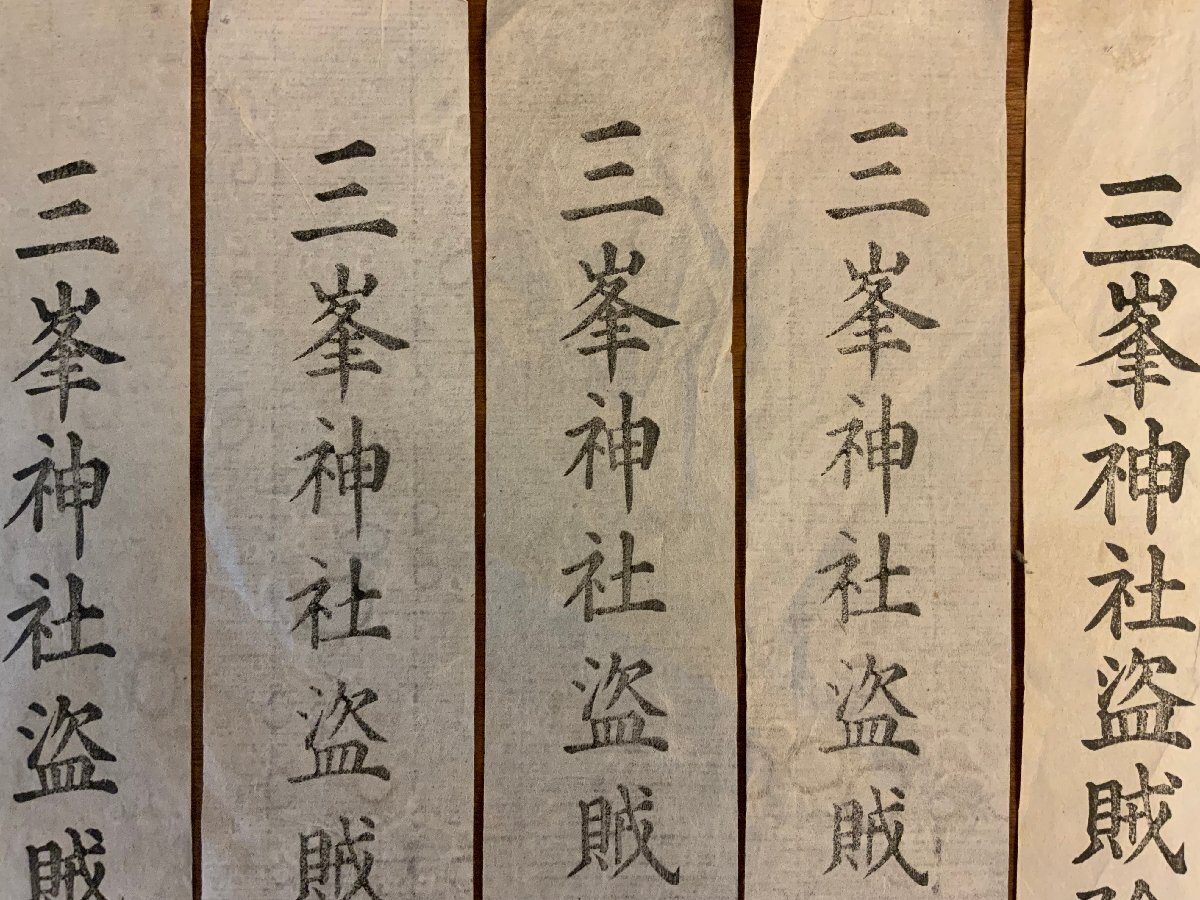 三峯神社盗賊
三峯神社盗賊
三峯神社盗賊
三峯神社盗賊
三峯神社盗賊